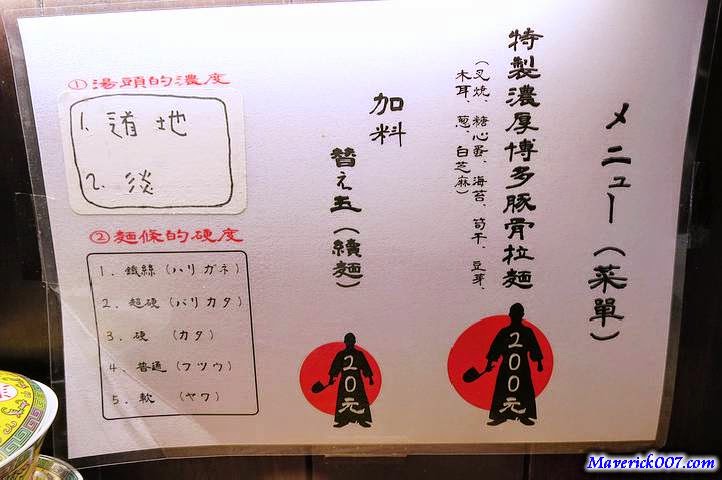 メニュー（菜單）
特製濃厚博多豚骨拉麵
（叉燒、糖心蛋、海苔、筍干、豆芽、
木耳、蔥、白芝麻）
200元
加料
替え玉（續麵）
20元
①湯頭的濃度
1. 道地
2. 淡
②麵條的硬度
1. 鐵絲（ハリガネ）
2. 超硬（バリカタ）
3. 硬（カタ）
4. 普通（フツウ）
5. 軟（ヤワ）
Maverick007.com